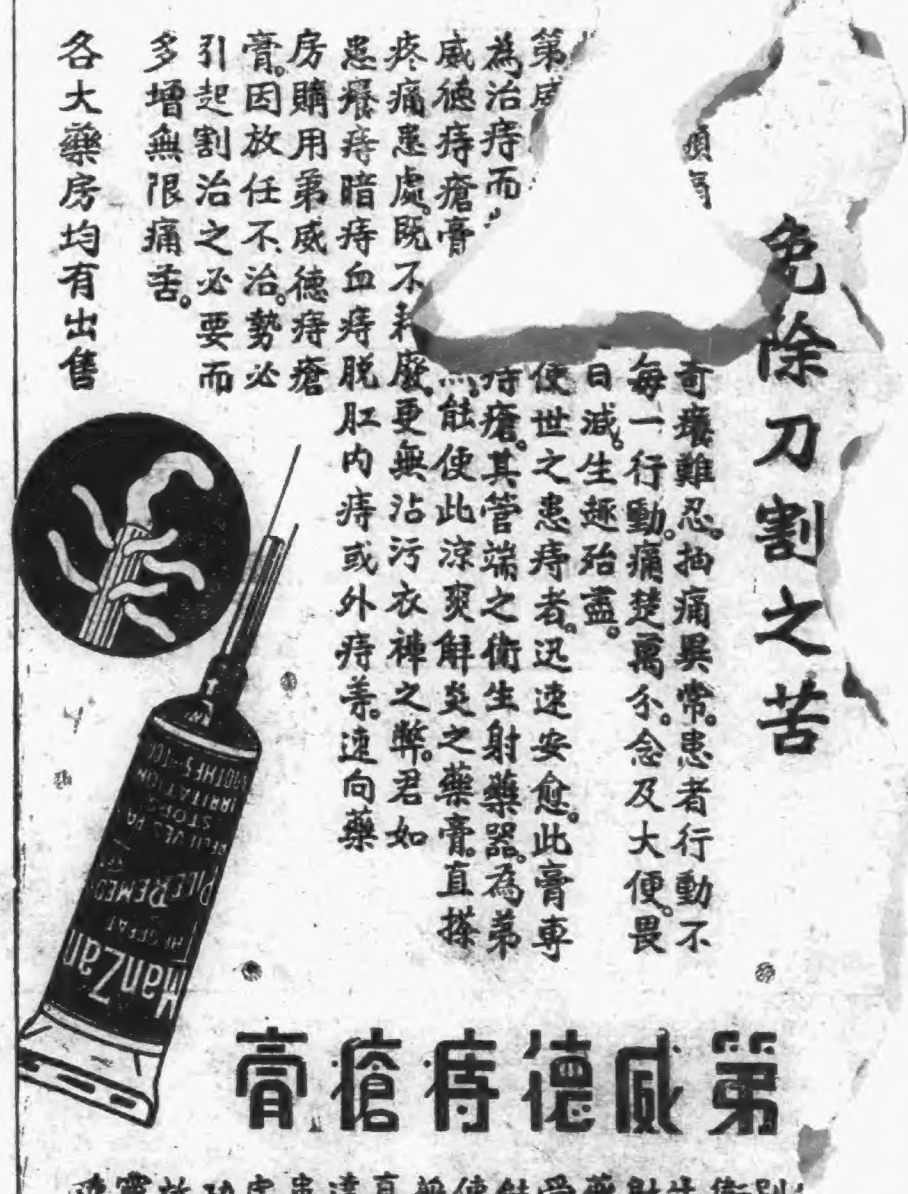 免除刀割之苦
奇癢難忍。抽痛異常。患者行動不
每一行動。痛楚萬分。念及大便。畏
日減。生趣殆盡。
第威
使世之患痔者。迅速安愈。此膏專
為治痔而
痔瘡。其管端之衛生射藥器。為弟
威德痔瘡膏
能使此涼爽解炎之藥膏。直搽
疼痛患處。既不耗廢。更無沾污衣褲之弊。君如
患癢痔暗痔血痔脱肛内痔或外痔等。速向藥
房購用弟威德痔瘡
膏。因放任不治。勢必
引起割治之必要而
多增無限痛苦。
各大藥房均有出售
ManZan
THE GREAT
PILE REMEDY
RELIEVES PA
STOPS
IRRITATION
SOOTHES
第威德痔瘡膏